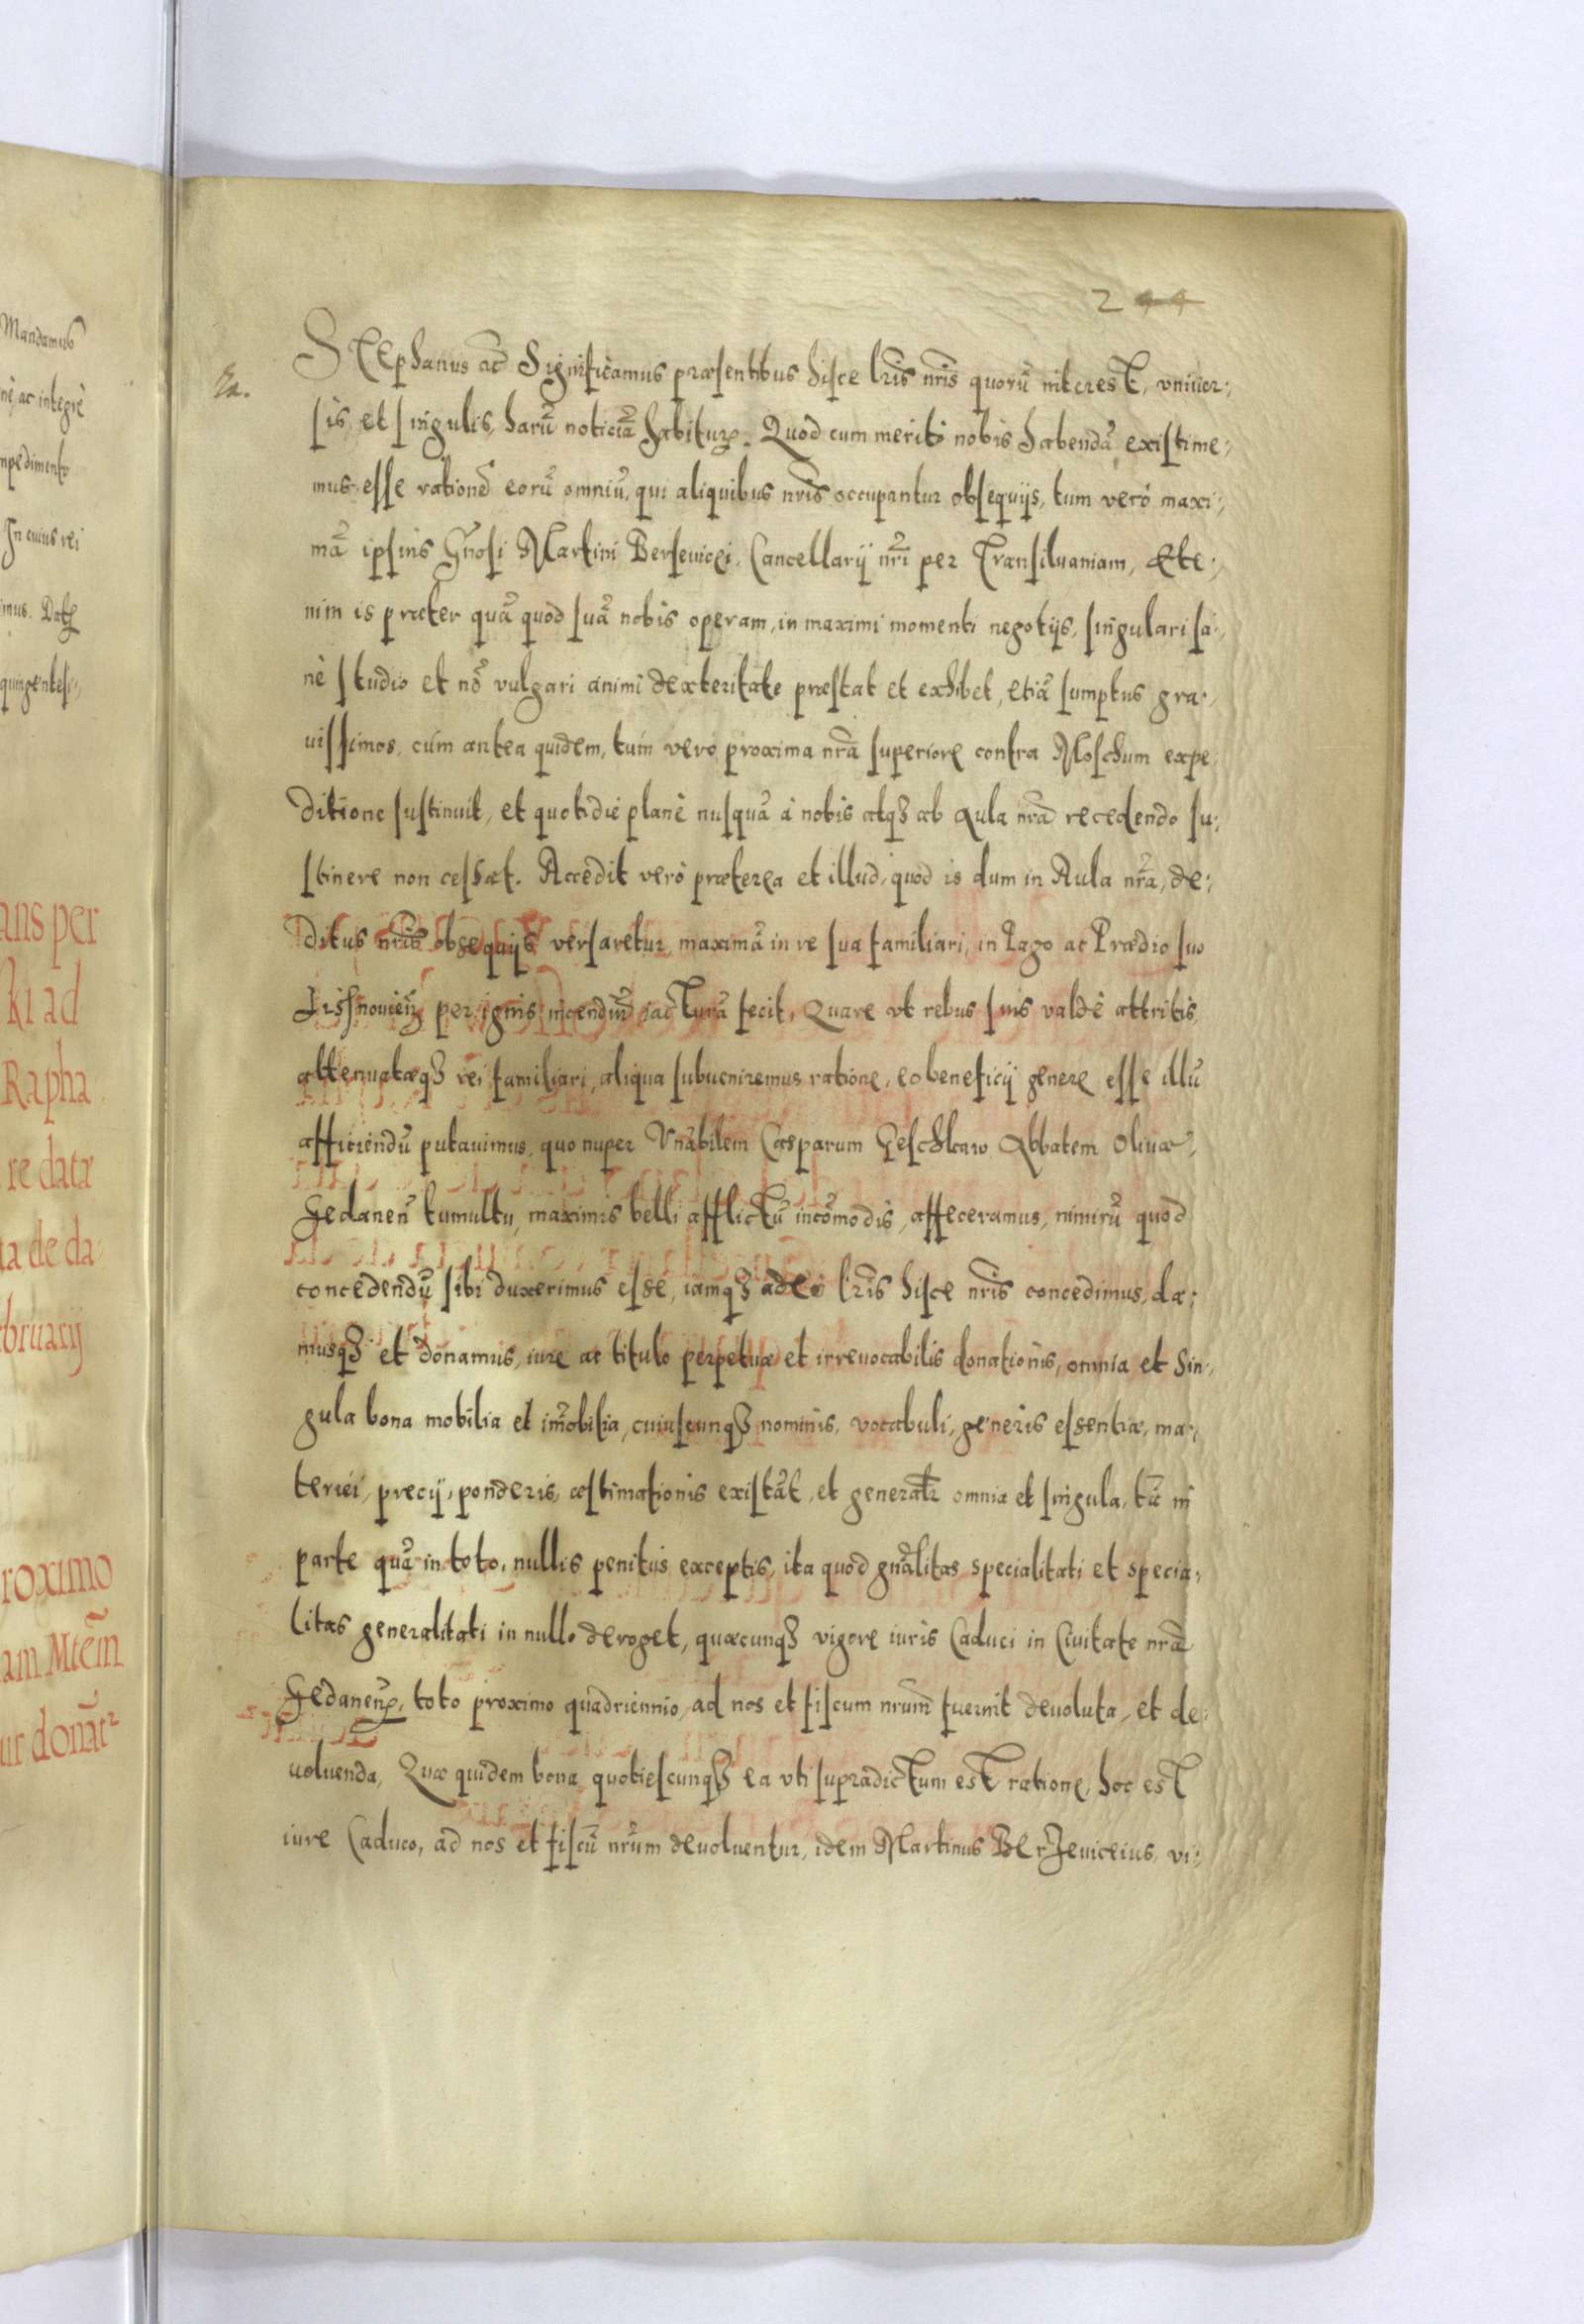 Mandamus
nè, ac integrè
mpedimento
In cuius rei
imus. Datȩ
quingentesi:,
ans per
ki ad
Rapha
re datæ
ta de da:
ebruarij
roximo
am Mtēm
ur donāt²
244
Stephanus etc̃ Significamus præsentibus hisce lr̃is nr̃is quorũ interest, vniuer:,
sis et singulis, harũ noticiã habituȩ. Quod cum meritò nobis habendã existime:,
mus esse rationẽ eorũ omniũ, qui aliquibus nr̃is occupantur obsequijs, tum verò maxi:,
mã ipsius Gñosi Martini Berseuicei, Cancellarij nr̃i per Transiluaniam, Ete:,
nim is præter quã quòd suã nobis operam, in maximi momenti negotijs, singulari sa:,
nè studio et nõ vulgari animi dexteritate præstat et exhibet, etiã sumptus gra:,
uissimos, cùm antea quidem, tum verò proxima nr̃a superiore contra Moschum expe:
ditione sustinuit, et quotidiè planè nusquã à nobis atqȝ ab Aula nr̃a recedendo su:,
stinere non cessat. Accedit verò præterea et illud, quòd is dum in Aula nr̃a, de:,
ditus nr̃is obsequijs versaretur, maximã in re sua familiari, in Pago ac Prædio suo
per ignis incendiũ iacturã fecit, Quare vt rebus suis valdè attritis,
attenuatæqȝ rei familiari, aliqua subueniremus ratione, eo beneficij genere esse illũ
afficiendũ putauimus, quo nuper Vnãbilem Casparum Geschkaw Abbatem Oliuæ,
Gedaneñ tumultu, maximis belli afflictũ incõmodis, affeceramus, nimirũ quod
concedendũ sibi duxerimus esse, iamqȝ adeò lr̃is hisce nr̃is concedimus, da:,
musqȝ et donamus, iure ac titulo perpetuæ et irreuocabilis donationis, omnia et sin:,
gula bona mobilia et im̃obilia, cuiuscunqȝ nominis, vocabuli, generis essentiæ, ma:,
teriei, precij, ponderis, æstimationis existãt, et generalr̃ omnia et singula, tã in
parte quã in toto, nullis penitus exceptis, ita quòd gñalitas specialitati et specia:,
litas generalitati in nullo deroget, quæcunqȝ vigore iuris Caduci in Ciuitate nr̃a
Gedaneñȩ, toto proximo quadriennio, ad nos et fiscum nr̃um fuerint deuoluta, et de:
uoluenda, Quæ quidem bona quotiescunqȝ ea vti supradictum est ratione, hoc est
iure Caduco, ad nos et fiscũ nr̃um deuoluentur, idem Martinus Berzeuiceius, vi:,